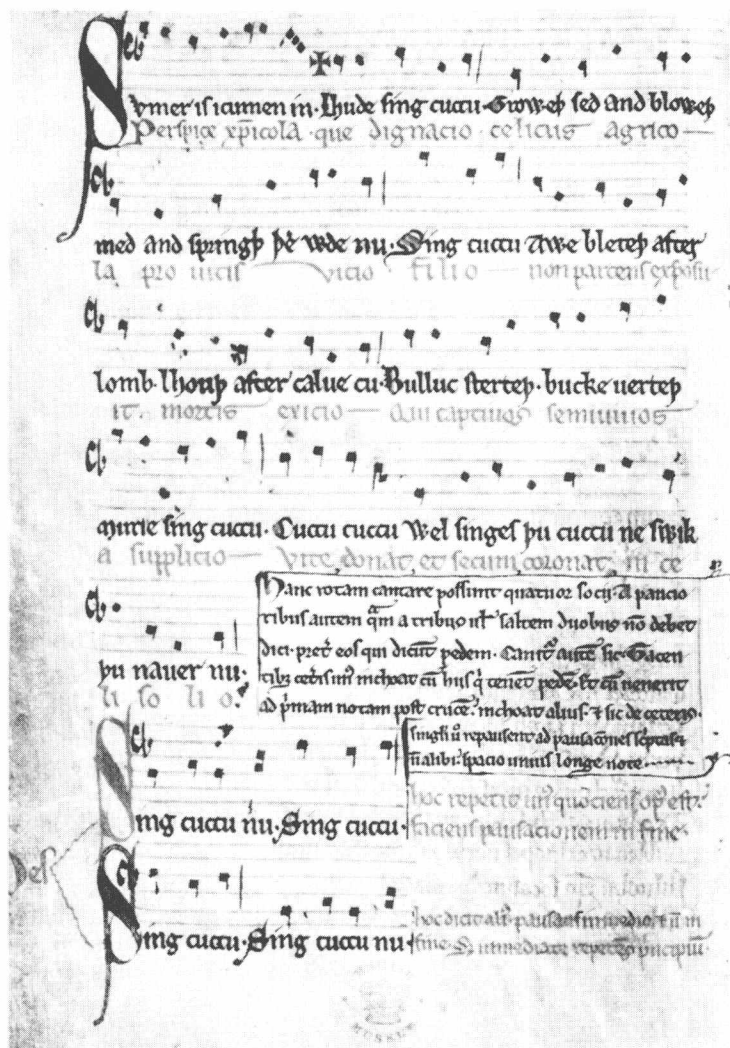 Sumer is icumen in· Lhude sing cuccu· Groweþ sed and bloweþ
Perspice xp̄icola· que dignacio celicus agrico
med and springþ þe wde nu· Sing cuccu Awe bleteþ after
la pro uitis vicio filio non parcens exposu
lomb· lhouþ after calue cu· Bulluc sterteþ· bucke uerteþ
it mortis exicio Qui captiuos semiuiuos
murie sing cuccu· Cuccu cuccu Wel singes þu cuccu ne swik
a supplicio Vite donat et secum coronat in ce
þu nauer nu·
li solio·
Hanc rotam cantare possunt quatuor socij· A paucio
ribus autem q̄m a tribus ul̛ saltem duobus nō debet
dici· pret̛ eos qui dicūt pedem· Canit̛ autē sic· Tacen
tibꝫ cet̛is un̛ inchoat cū hiis q̛ tenēt pedē· Et cū uenerit
ad p̛mam notam post crucē· inchoat alius· ⁊ sic de ceteris·
singli ư repausent ad pausac̄ones sc̛ptas ⁊
n̄ alibi· spacio unius longe note
Sing cuccu nu· Sing cuccu·
hoc repetit un̛ quociens op̛ est·
faciens pausacionem in fine·
Pes
Sing cuccu· Sing cuccu nu·
hoc dicit ali̛· pausans in medio ⁊ n̄ in
fine· S̛ immediate repetēs p̛ncipiū·